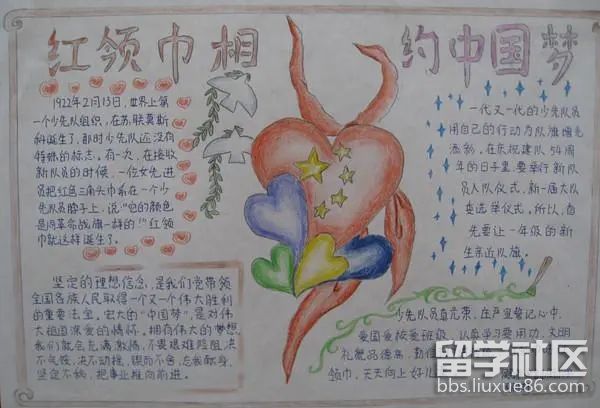 红领巾相约中国梦
1922年2月13日,世界上第
一个少先队组织,在苏联莫斯
科诞生了,那时少先队还没有
特殊的标志。有一次,在接收
新队员的时候,一位女先进
员把红色三角头巾系在一个少
先队员脖子上,说“它的颜色
是同革命战旗一样的!”红领
巾就这样诞生了。
坚定的理想信念,是我们党带领
全国各族人民取得一个又一个伟大胜利
的重要法宝,宏大的“中国梦”,是对伟
大祖国深爱的情怀。拥有伟大的梦想
我们就会充满激扬,不畏艰难险阻,决
不气馁,决不动摇,锲而不舍,忘我献身,
坚定不移,把事业推向前进。
一代又一代的少先队员
用自己的行动为队旗增光
添彩,在庆祝建队54周
年的日子里,要举行新队
员入队仪式,新一届大队
委选举仪式。所以,首
先要让一年级的新
生亲近队旗。
少先队员真光荣,庄严
记心中,
爱国爱校爱班级,认真学习要用功,文明
礼貌品德高,勤俭
领巾,天天向上好儿
留学社区
bbs.liuxue86.com